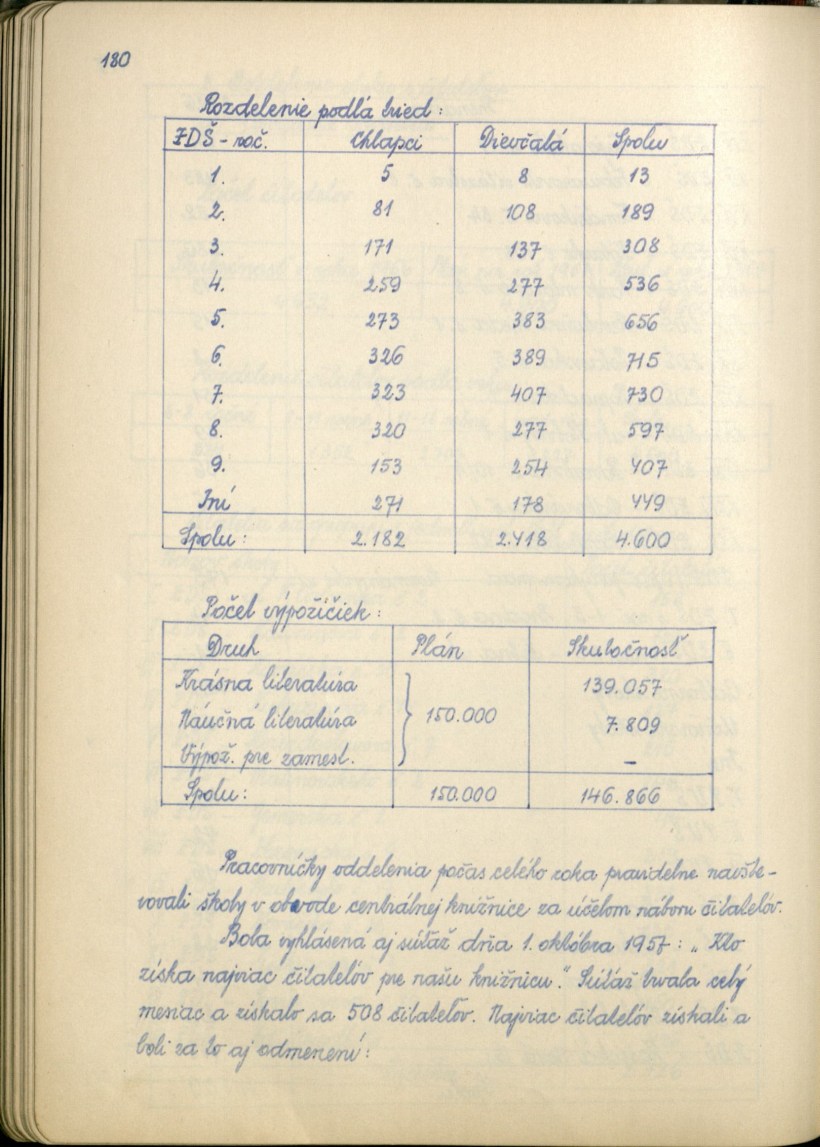 180
Rozdelenie podľa tried:
ZDŠ - roč. Chlapci Dievčatá Spolu
1. 5 8 13
2. 81 108 189
3. 171 137 308
4. 259 277 536
5. 273 383 656
6. 326 389 715
7. 323 407 730
8. 320 277 597
9. 153 254 407
Iní 271 178 449
Spolu: 2.182 2.418 4.600
Počet výpožičiek:
Druh Plán Skutočnosť
Krásna literatúra 139.057
Náučná literatúra 150.000 7.809
Výpož. pre zamest. -
Spolu: 150.000 146.866
Pracovníčky oddelenia počas celého roka pravidelne navšte-
vovali školy v obvode centrálnej knižnice za účelom náboru čitateľov.
Bola vyhlásená aj súťaž dňa 1. októbra 1957: „Kto
získa najviac čitateľov pre našu knižnicu." Súťaž trvala celý
mesiac a získalo sa 508 čitateľov. Najviac čitateľov získali a
boli za to aj odmenení: